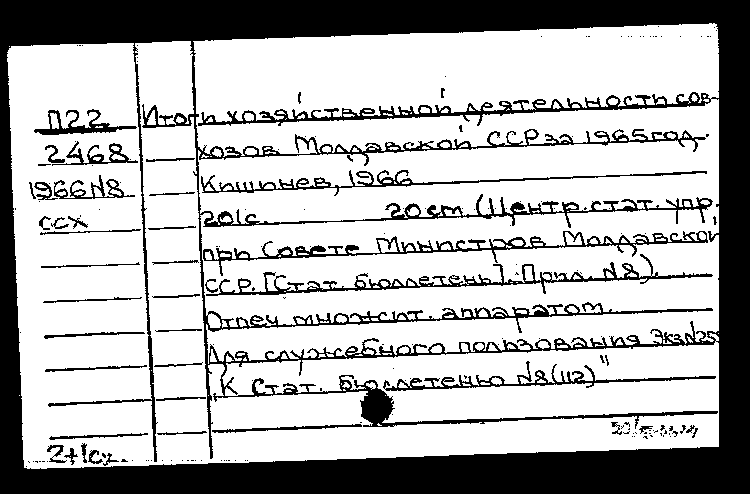 П22 Итоги хозяйственной деятельности сов-
2468 хозов Молдавской ССР за 1965 год.
1966 N8 Кишинев, 1966
ССХ 201с. 20 см. (Центр. стат. упр.
при Совете Министров Молдавской
ССР. [Стат. бюллетень]. Прил. N8).
Отпеч. множит. аппаратом.
Для служебного пользования Экз. N255
"К Стат. бюллетеню N8(112)"
2+1сх.